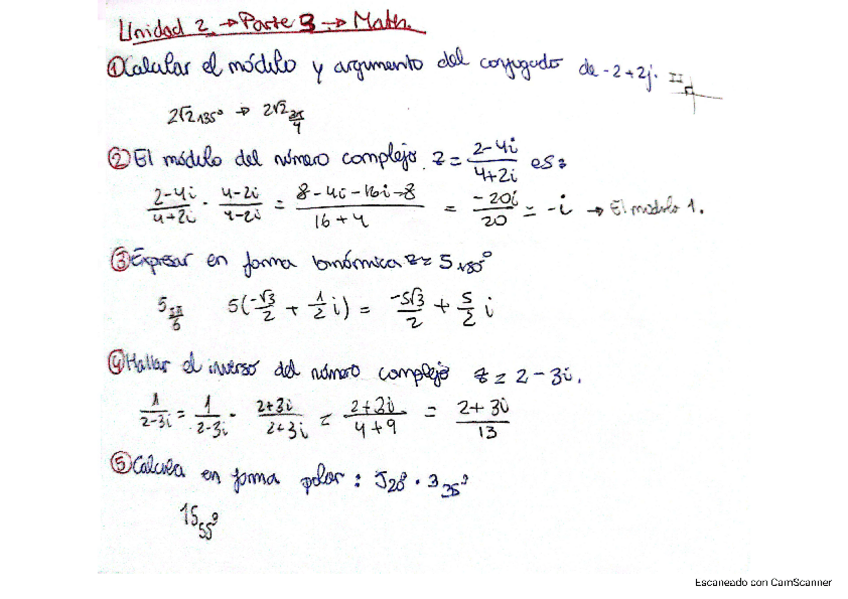 Unidad 2 → Parte 3 → Math.
① Calcular el módulo y argumento del conjugado de -2+2j.
2√2 135° → 2√2 3π/4
② El módulo del número complejo z = (2-4i)/(4+2i) es:
(2-4i)/(4+2i) · (4-2i)/(4-2i) = (8-4i-16i-8)/(16+4) = -20i/20 = -i → El modulo 1.
③ Expresar en forma binómica z = 5 150°
5 5π/6 5(-√3/2 + 1/2 i) = -5√3/2 + 5/2 i
④ Hallar el inverso del número complejo z = 2-3i.
1/(2-3i) = 1/(2-3i) · (2+3i)/(2+3i) = (2+3i)/(4+9) = (2+3i)/13
⑤ Calcula en forma polar: 5 20° · 3 35°
15 55°
Escaneado con CamScanner